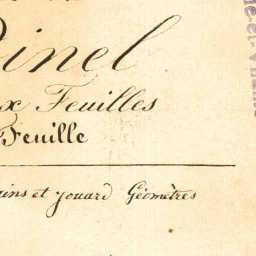 Pinel
x Feuilles
Feuille
ins et Jouard Géomètres